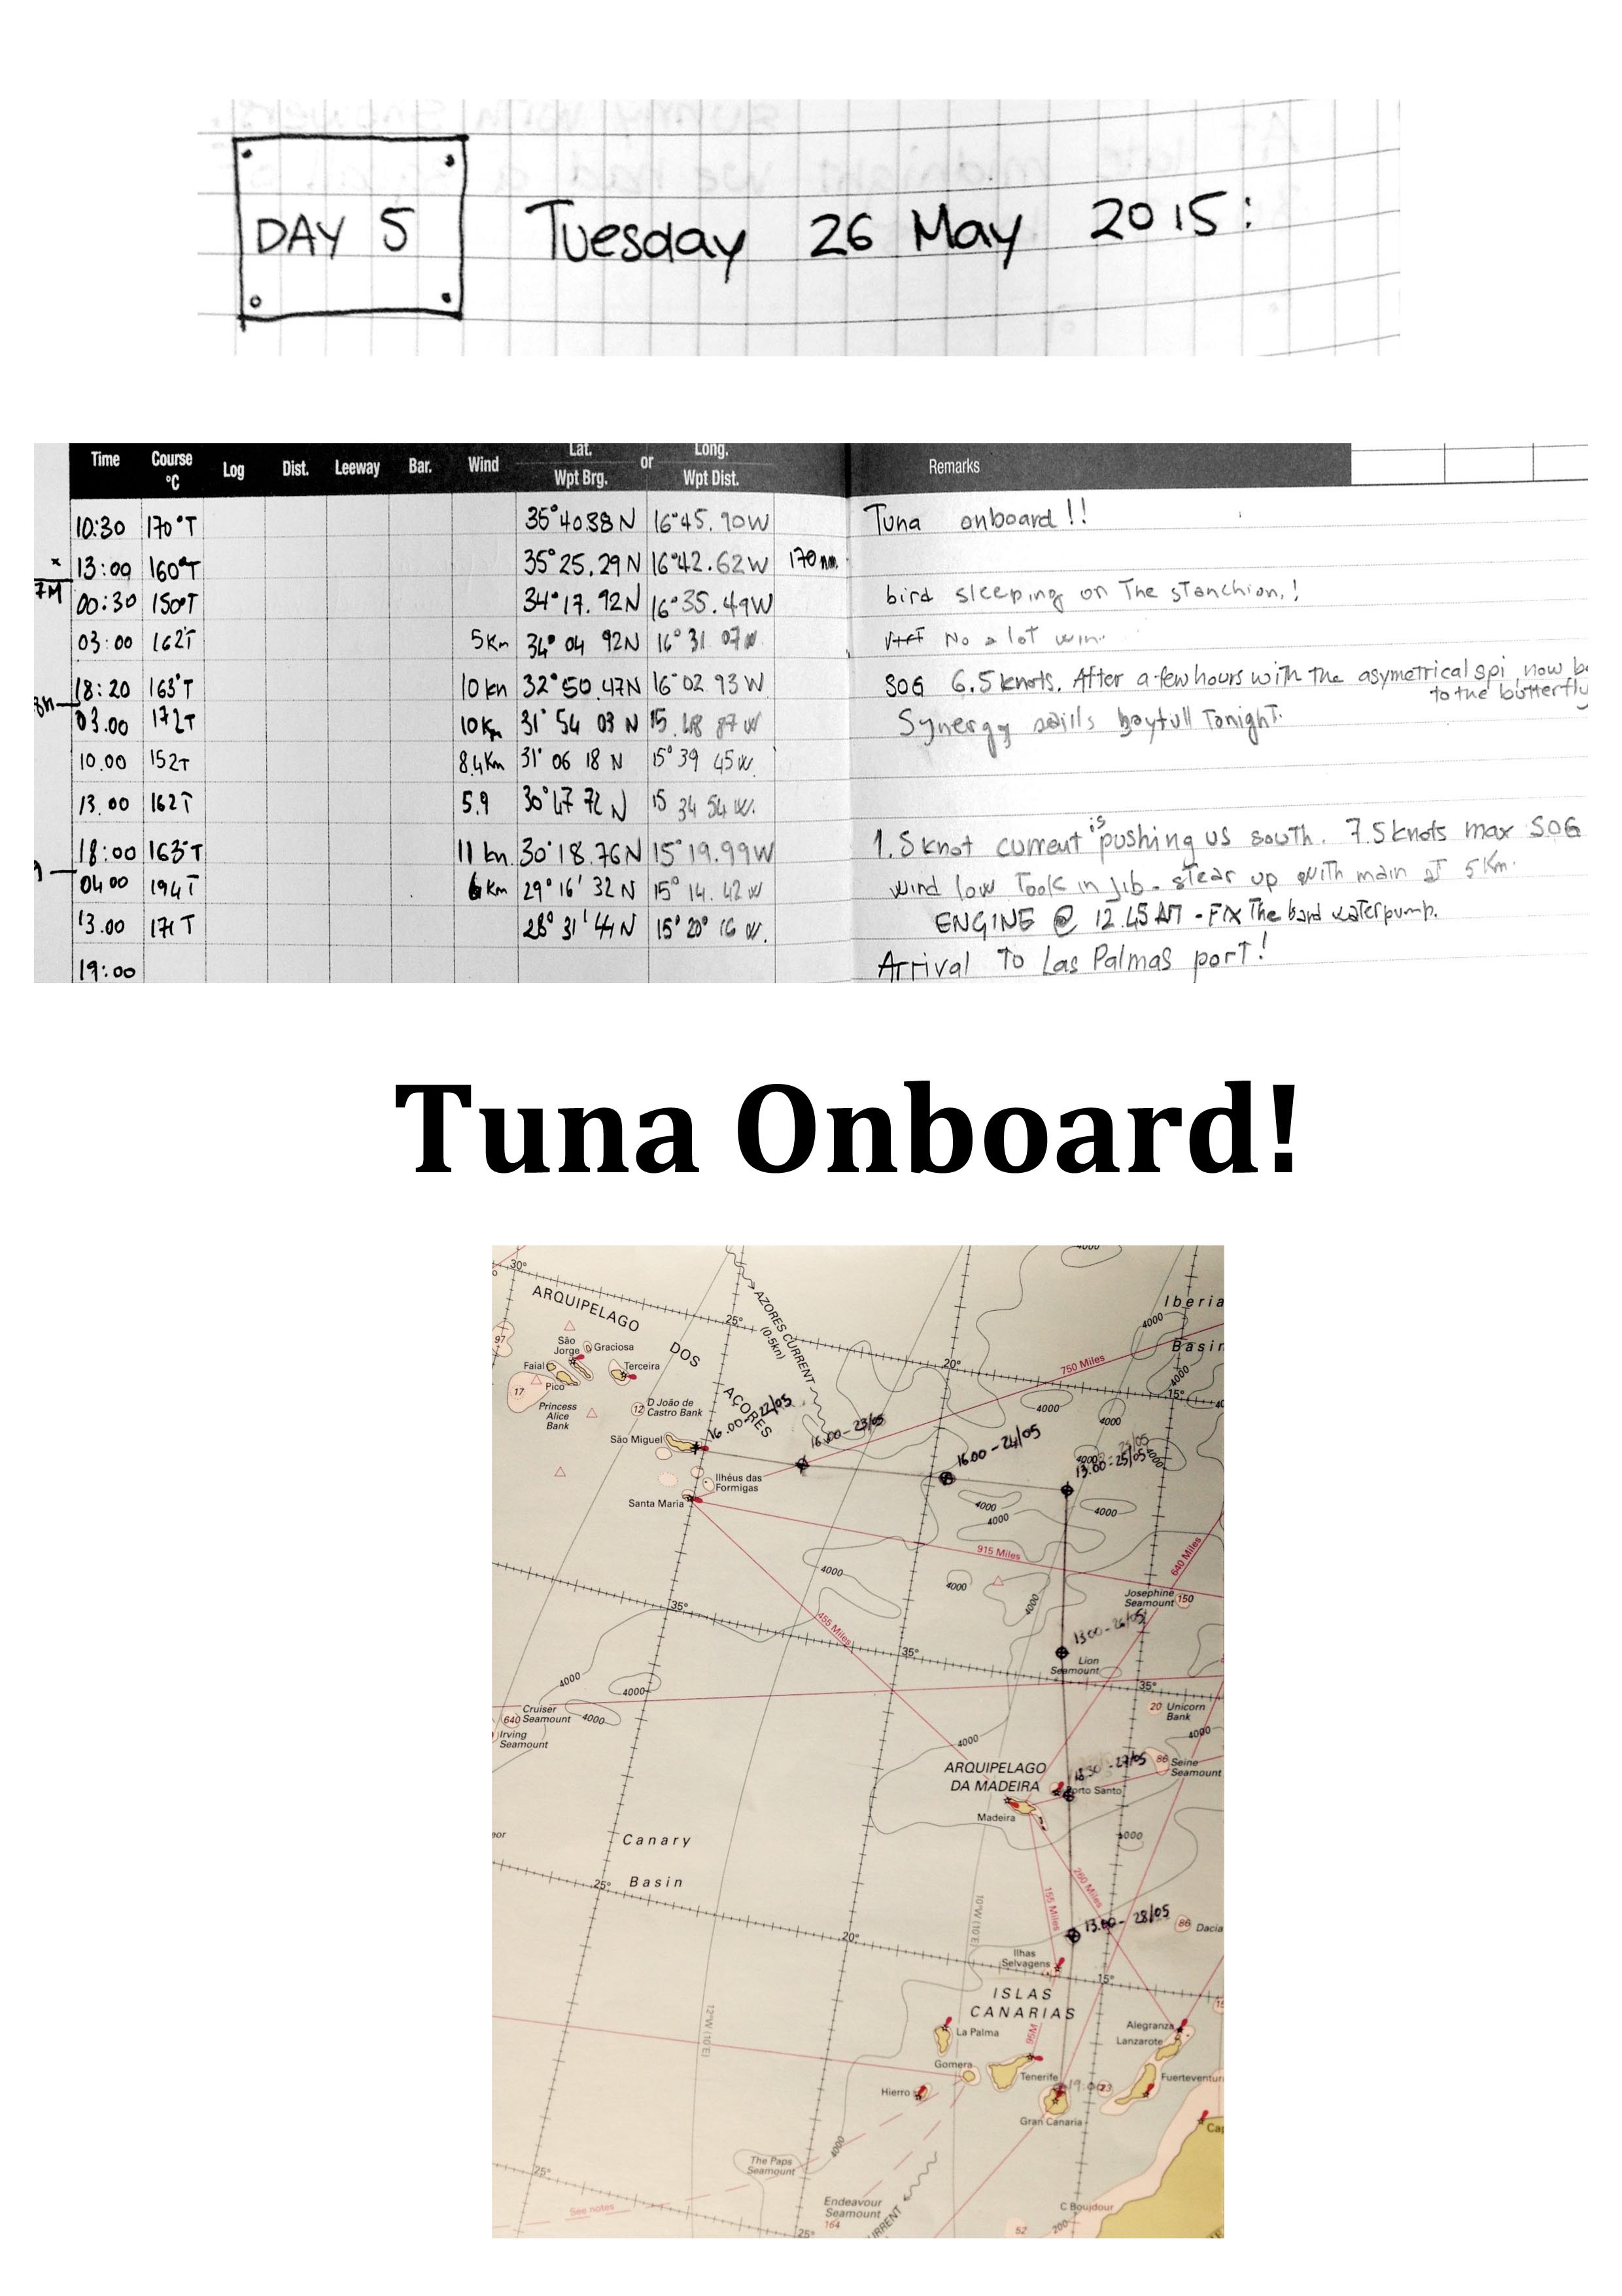 DAY 5 Tuesday 26 May 2015:
Time Course °C Log Dist. Leeway Bar. Wind Lat. Wpt Brg. or Long. Wpt Dist. Remarks
10:30 170°T 35°40.38 N 16°45.90W Tuna onboard!!
13:00 160°T 35°25.29 N 16°42.62W 170 nm.
00:30 150°T 34°17.92N 16°35.49W bird sleeping on The stanchion.!
03:00 162T 5Km 34° 04 92N 16° 31 07W No a lot win.
18:20 163°T 10 kn 32°50.47N 16°02 93 W SOG 6.5 knots. After a few hours with the asymetrical spi, now b
to the butterfly
03.00 172T 10 Km 31° 54 03 N 15. 48 87 W Synergy saills tonight.
10.00 152T 8.4Km 31° 06 18 N 15° 39 45W.
13.00 162T 5.9 30°47 72 N 15 34 54 W.
18:00 163°T 11 kn. 30°18.76N 15°19.99W 1.5 knot current is pushing us south. 7.5 knots max SOG
04 00 194T 6 Km 29° 16' 32 N 15° 14. 42 W wind low Took in jib. stear up with main at 5 Km.
13.00 171T 28° 31' 44 N 15° 20° 16 W. ENGINE @ 12.45 AM - FIX The bard waterpump.
19:00 Arrival To Las Palmas port!
Tuna Onboard!
4000
30°
ARQUIPELAGO
DOS
AÇORES
AZORES CURRENT
(0·5kn)
25°
Iberia
Basin
4000
97
São Jorge
Graciosa
Faial
Pico
Terceira
17
Princess Alice Bank
12 D João de Castro Bank
20°
750 Miles
15°
4000
4000
4000
16.00 - 22/05
16.00 - 23/05
16.00 - 24/05
13.00 - 25/05
4000
São Miguel
Ilhéus das Formigas
Santa Maria
4000
4000
4000
915 Miles
640 Miles
4000
4000
4000
Josephine Seamount 150
35°
455 Miles
13.00 - 26/05
35°
Lion Seamount
35°
4000
4000
640 Cruiser Seamount
4000
Irving Seamount
20 Unicorn Bank
4000
4000
ARQUIPELAGO
DA MADEIRA
27/05
86 Seine Seamount
Porto Santo
Madeira
4000
Canary
Basin
25°
155 Miles
260 Miles
10°W (10'E)
20°
13.00 - 28/05
86 Dacia
Ilhas Selvagens
15°
ISLAS
CANARIAS
12°W (10'E)
La Palma
95M
Alegranza
Lanzarote
Gomera
Tenerife
Fuerteventur
Hierro
19.00
Gran Canaria
Cap
The Paps Seamount
4000
25°
See notes
Endeavour Seamount
164
C Boujdour
200
52
25°